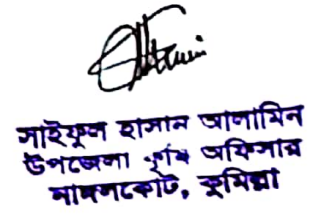 সাইফুল হাসান আলামিন
উপজেলা কৃষি অফিসার
নাঙ্গলকোট, কুমিল্লা